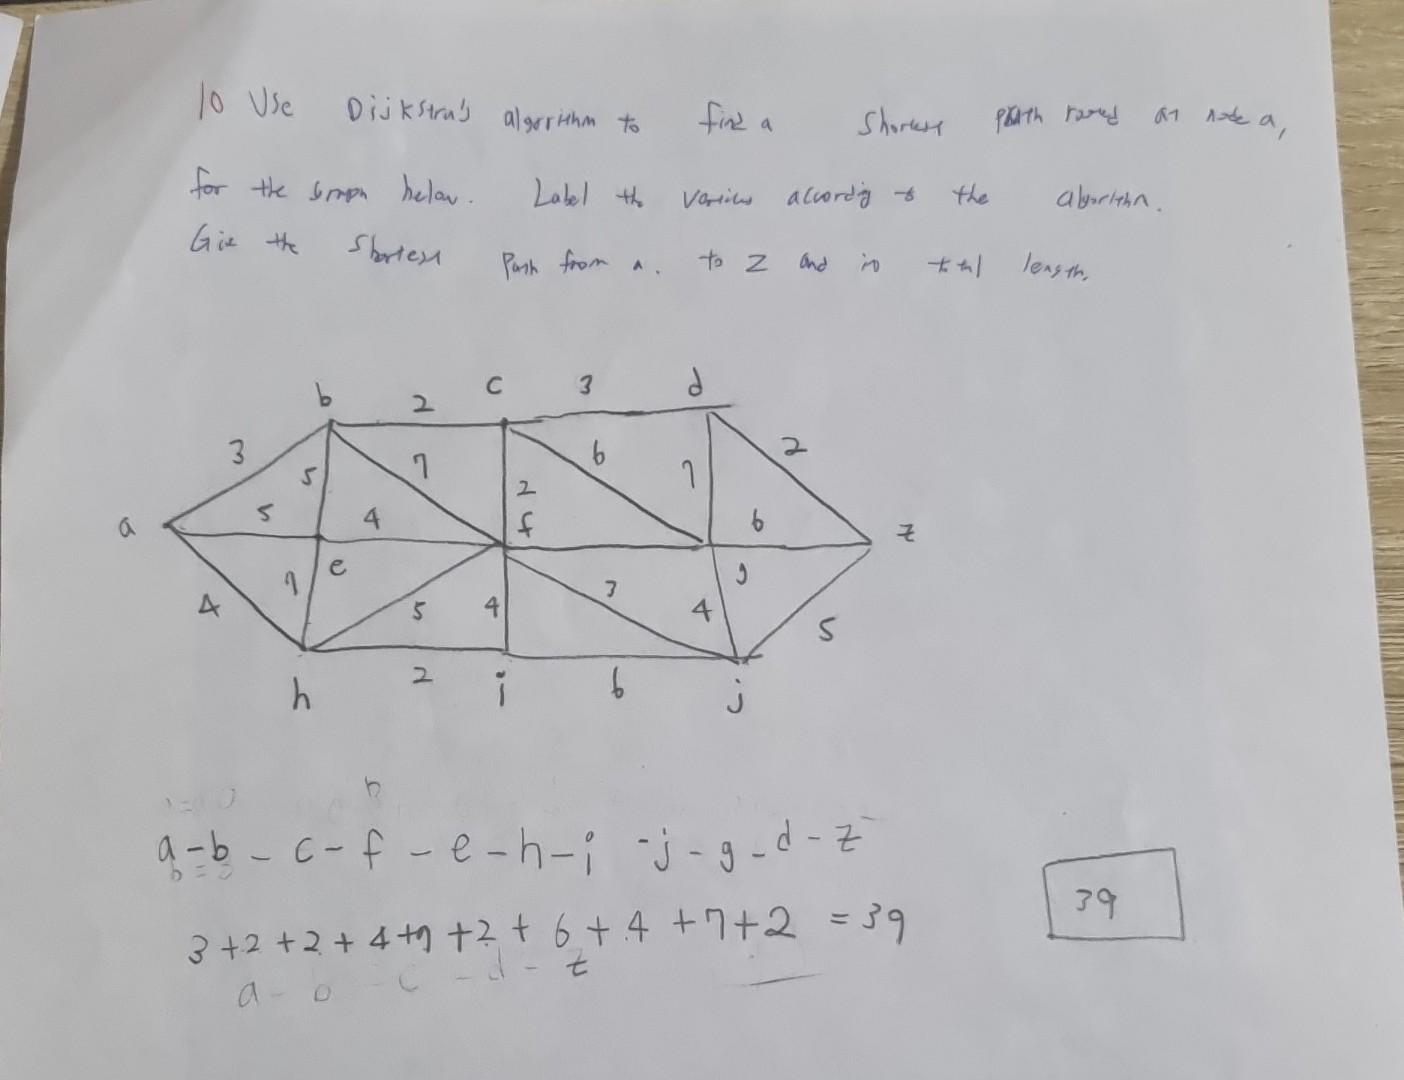 10 Use Dijkstra's algorithm to find a shortest path rooted at node a,
for the graph below. Label the vertices according to the algorithm.
Give the shortest path from a. to Z and its total length.
b 2 c 3 d
3 5 7 2 6 7 2
a 5 4 f 6 z
e g
4 7 5 4 3 4 5
h 2 i 6 j
b
a - b - c - f - e - h - i - j - g - d - z
b = 3
3 + 2 + 2 + 4 + 7 + 2 + 6 + 4 + 7 + 2 = 39
39
a - b - c - d - z